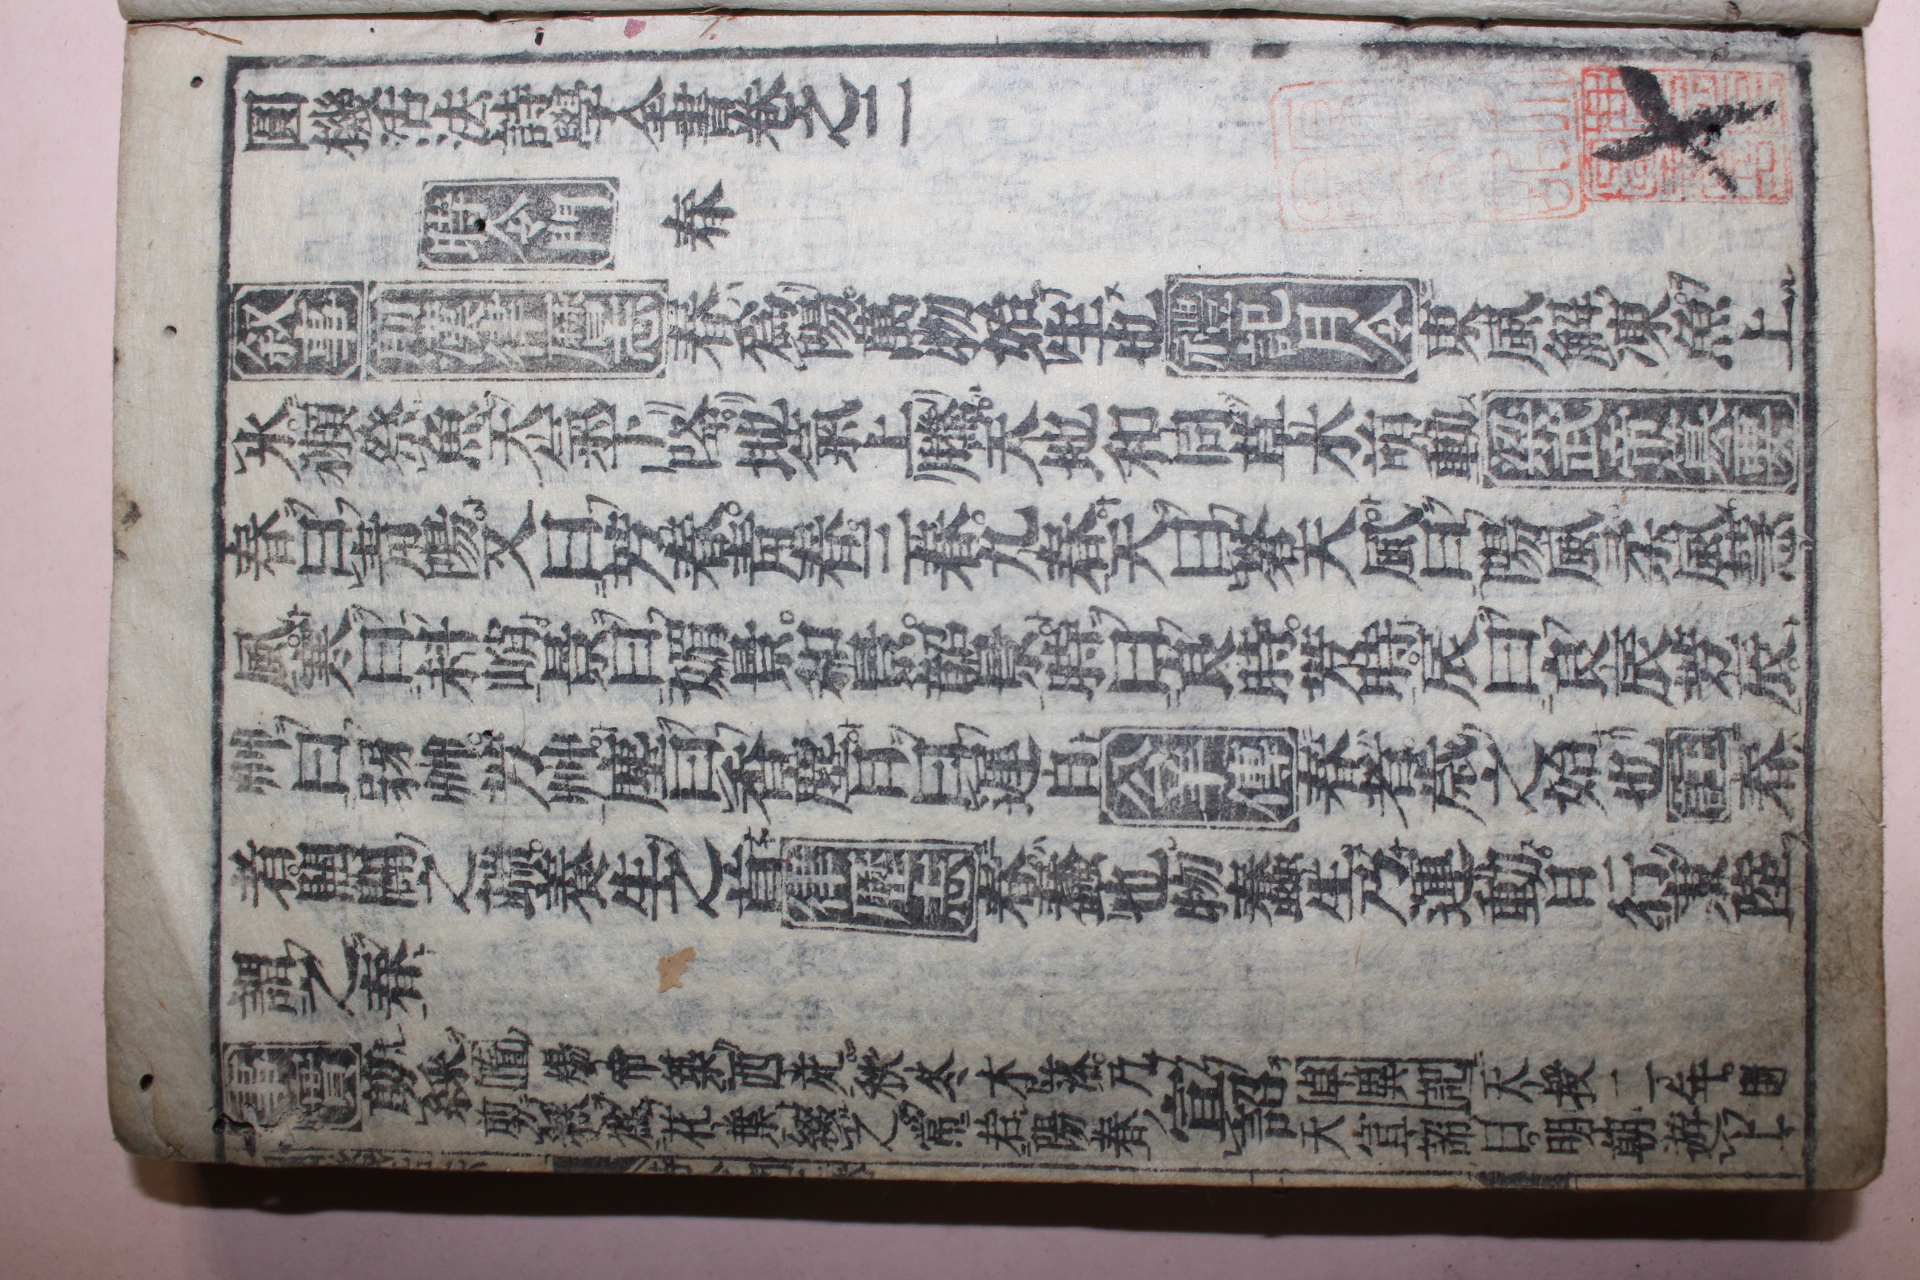 圓機活法詩學全書卷之二
時令門　春
叙事　前漢律曆志　春爲陽萬物始生也　禮記月令　東風解凍魚上
氷獺祭魚天气下降地氣上騰天地和同草木萌動　梁武帝纂要
春曰青陽又曰芳春青春三春九春天曰蒼天風曰陽風柔風慧
風寒曰料峭景曰媚景和景韶景時曰良時芳時辰曰良辰芳辰
艸曰弱艸芳艸塵曰香塵日曰遲日　公羊傳　春者歳之始也　註　春
者開闢之端養生之首　律歷志　春蠢也物蠢生乃運動日行東陸
謂之春
事實　剪綵　隋煬帝築西苑秋冬木落乃
剪綵爲花葉綴之常若陽春
宣詔　卓異記　天授二年
天宣詔曰明朝遊上